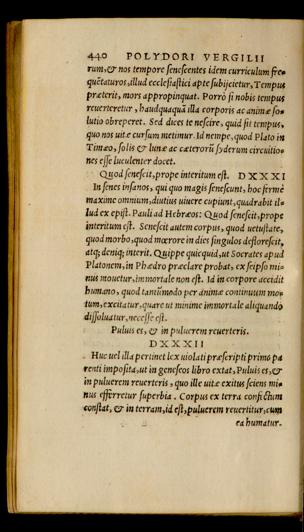 440 POLYDORI VERGILII
rum,& nos tempore senescentes idem curriculum fre-
quētaturos, illud ecclesiastici apte subijcietur, Tempus
præterit, mors appropinquat. Porrò si nobis tempus
reuerteretur, haudquaquā illa corporis ac animæ so-
lutio obreperet. Sed dices te nescire, quid sit tempus,
quo nos uitæ cursum metimur. Id nempe, quod Plato in
Timæo, solis & lunæ ac cæterorū syderum circuitio-
nes esse luculenter docet.
Quod senescit, prope interitum est. DXXXI
In senes insanos, qui quo magis senescunt, hoc firmè
maxime omnium, diutius uiuere cupiunt, quadrabit il-
lud ex epist. Pauli ad Hebræos: Quod senescit, prope
interitum est. Senescit autem corpus, quod uetustate,
quod morbo, quod mœrore in dies singulos deflorescit,
atq; deniq; interit. Quippe quicquid, ut Socrates apud
Platonem, in Phædro præclare probat, ex seipso mi-
nus mouetur, immortale non est. Id in corpore accidit
humano, quod tantūmodo per animæ continuum mo-
tum, excitatur, quare ut minime immortale aliquando
dissoluatur, necesse est.
Puluis es, & in puluerem reuerteris.
DXXXII
Huc uel illa pertinet lex uiolati præscripti primo pa-
renti imposita, ut in geneseos libro extat, Puluis es, &
in puluerem reuerteris, quo ille uitæ exitus sciens mi-
nus efferretur superbia. Corpus ex terra confictum
constat, & in terram, id est, puluerem reuertitur, cum
ea humatur.